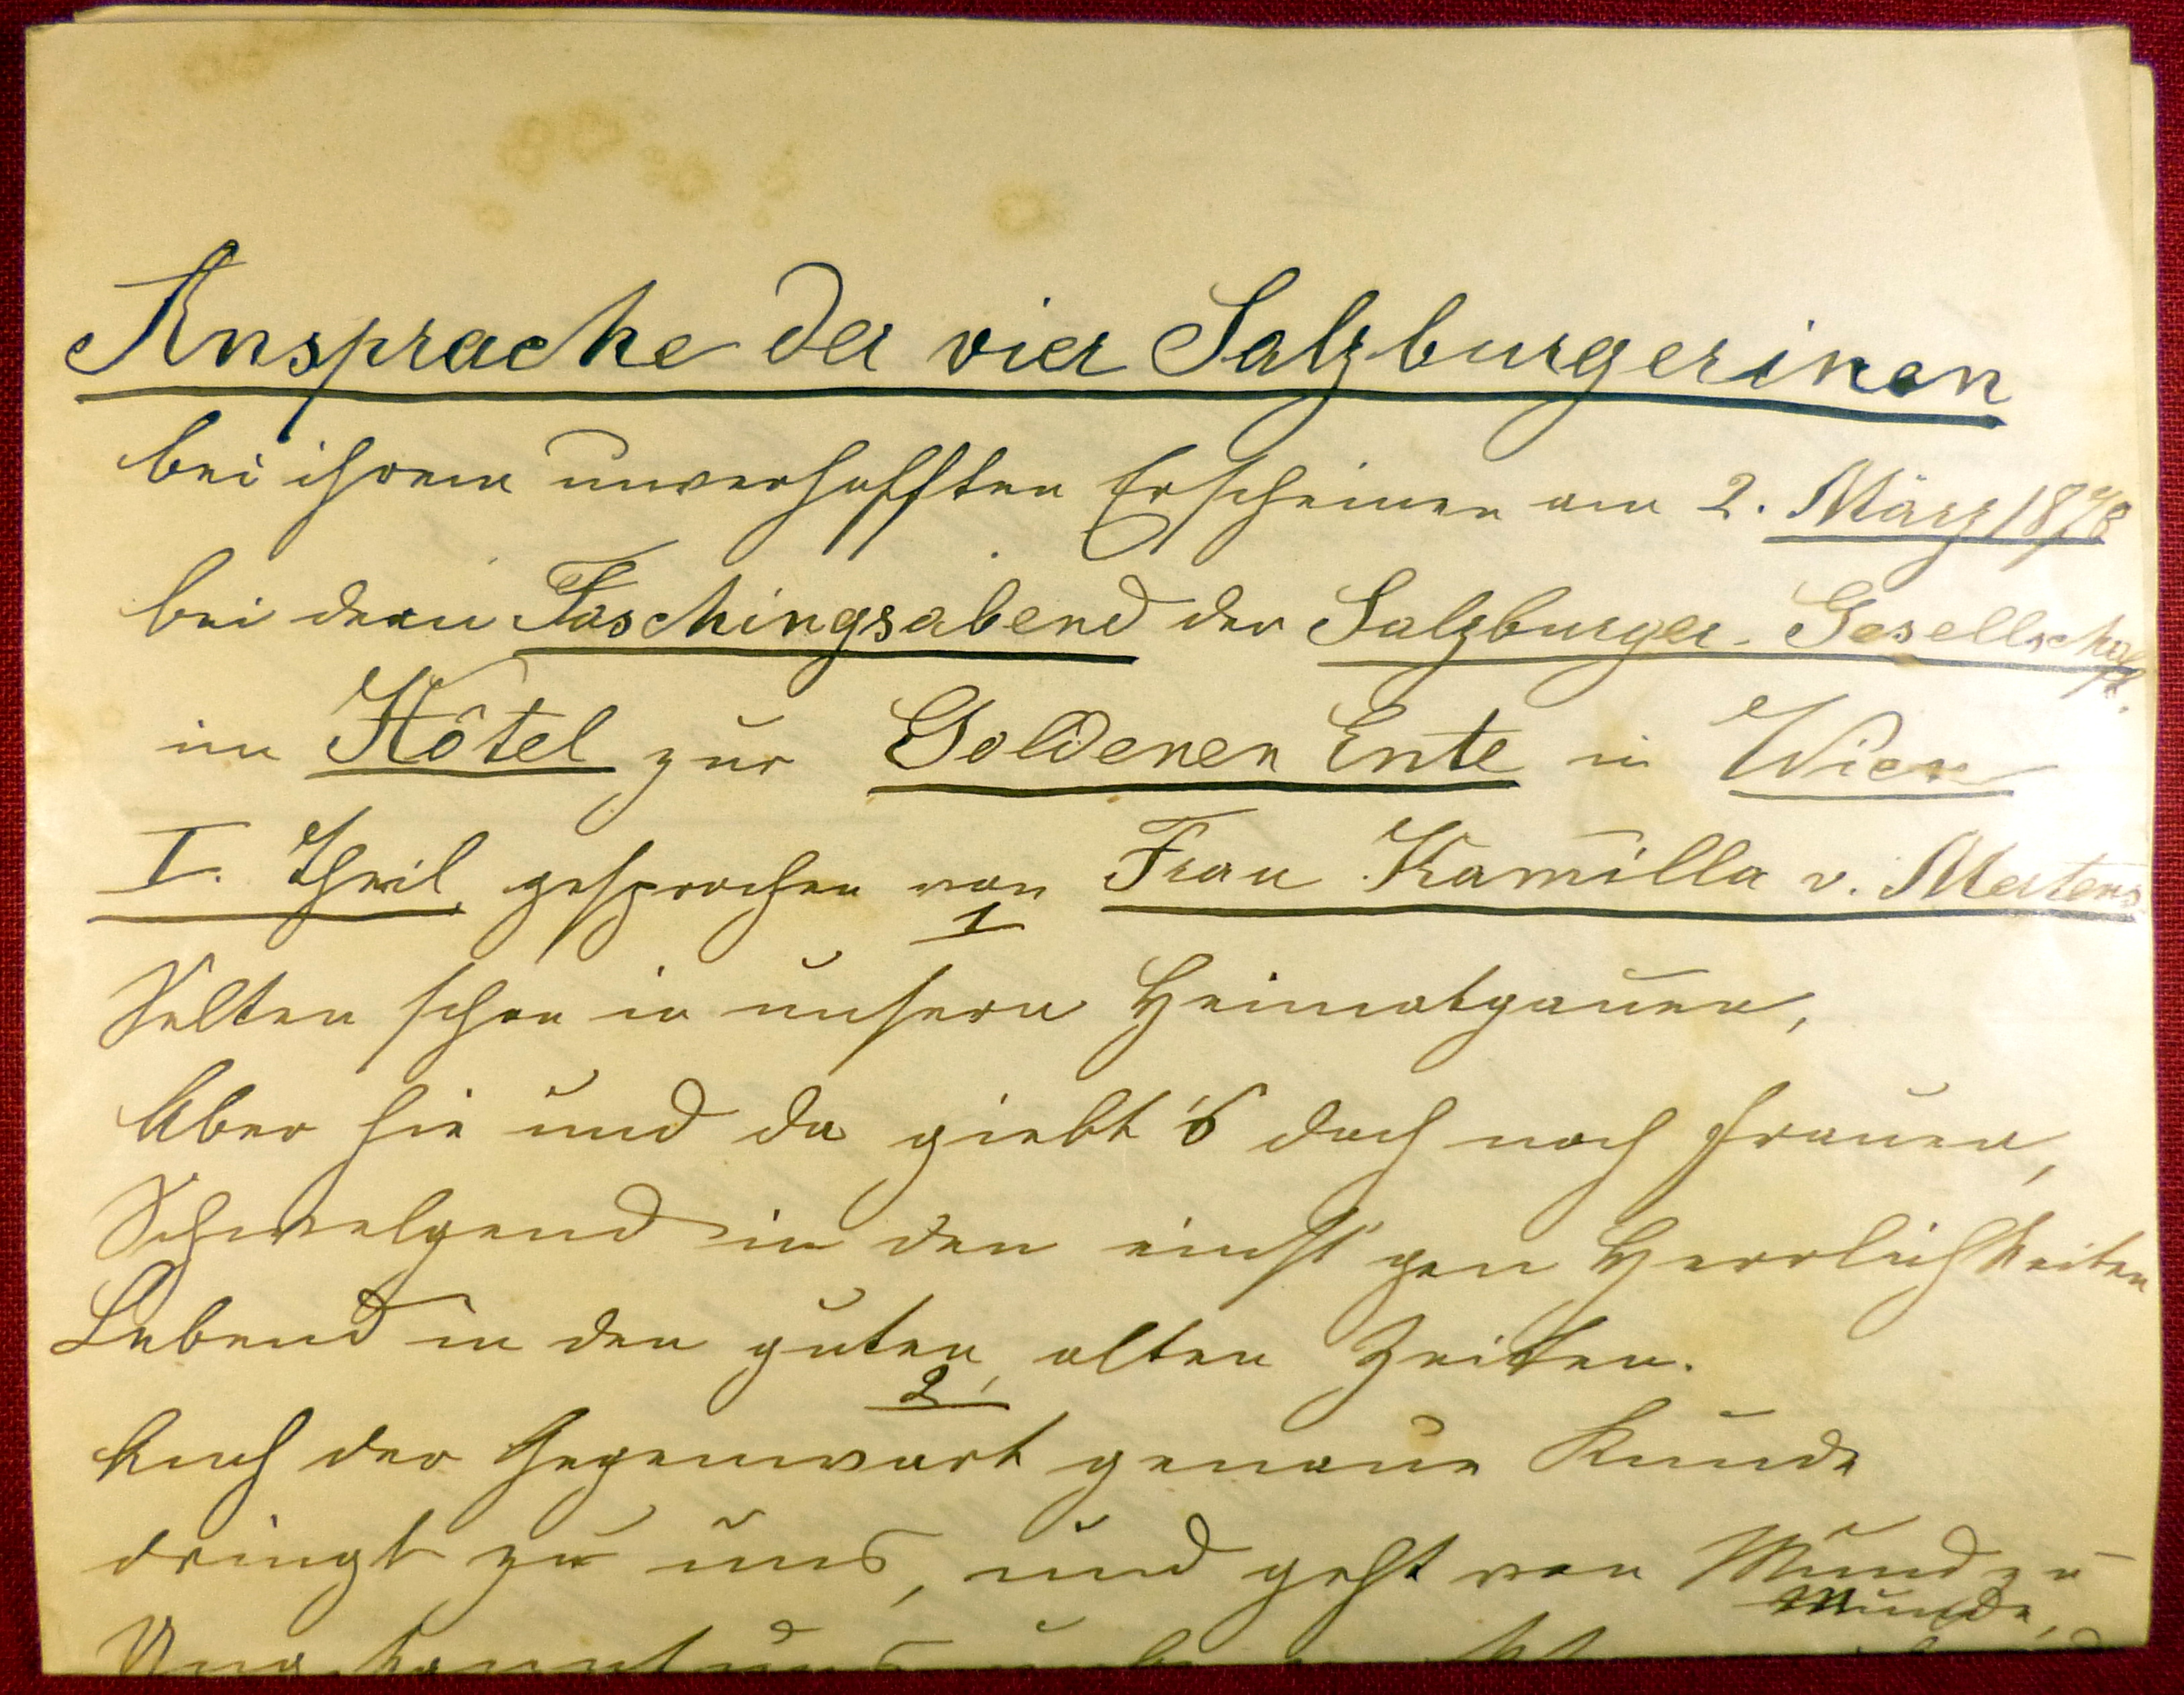 Ansprache der vier Salzburgerinen
bei ihrem unverhofften Erscheinen am 2. März 1878
bei dem Faschingsabend der Salzburger-Gesellschaft.
im Hôtel zur Goldenen Ente in Wien
I. Theil gesprochen von Frau Kamilla v. Mertens
1
Selten schon in unsern Heimatgauen,
Aber hie und da giebt's doch noch Frauen,
Schwelgend in den einst'gen Herrlichkeiten
Lebend in den guten, alten Zeiten.
2
Auch der Gegenwart genaue Kunde
dringt zu uns, und geht von Mund zu
Munde,